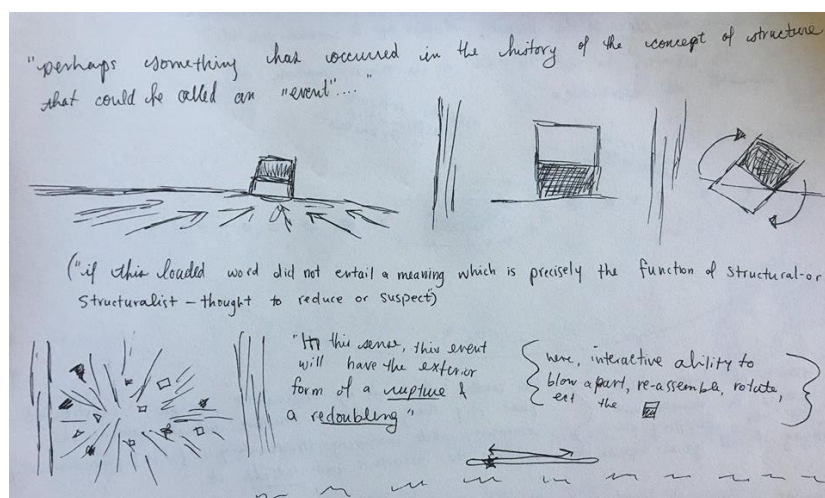 "perhaps something has occurred in the history of the concept of structure
that could be called an "event"...."
("if this loaded word did not entail a meaning which is precisely the function of structural-or
structuralist – thought to reduce or suspect")
"In this sense, this event
will have the exterior
form of a rupture &
a redoubling"
here, interactive ability to
blow apart, re-assemble, rotate,
the